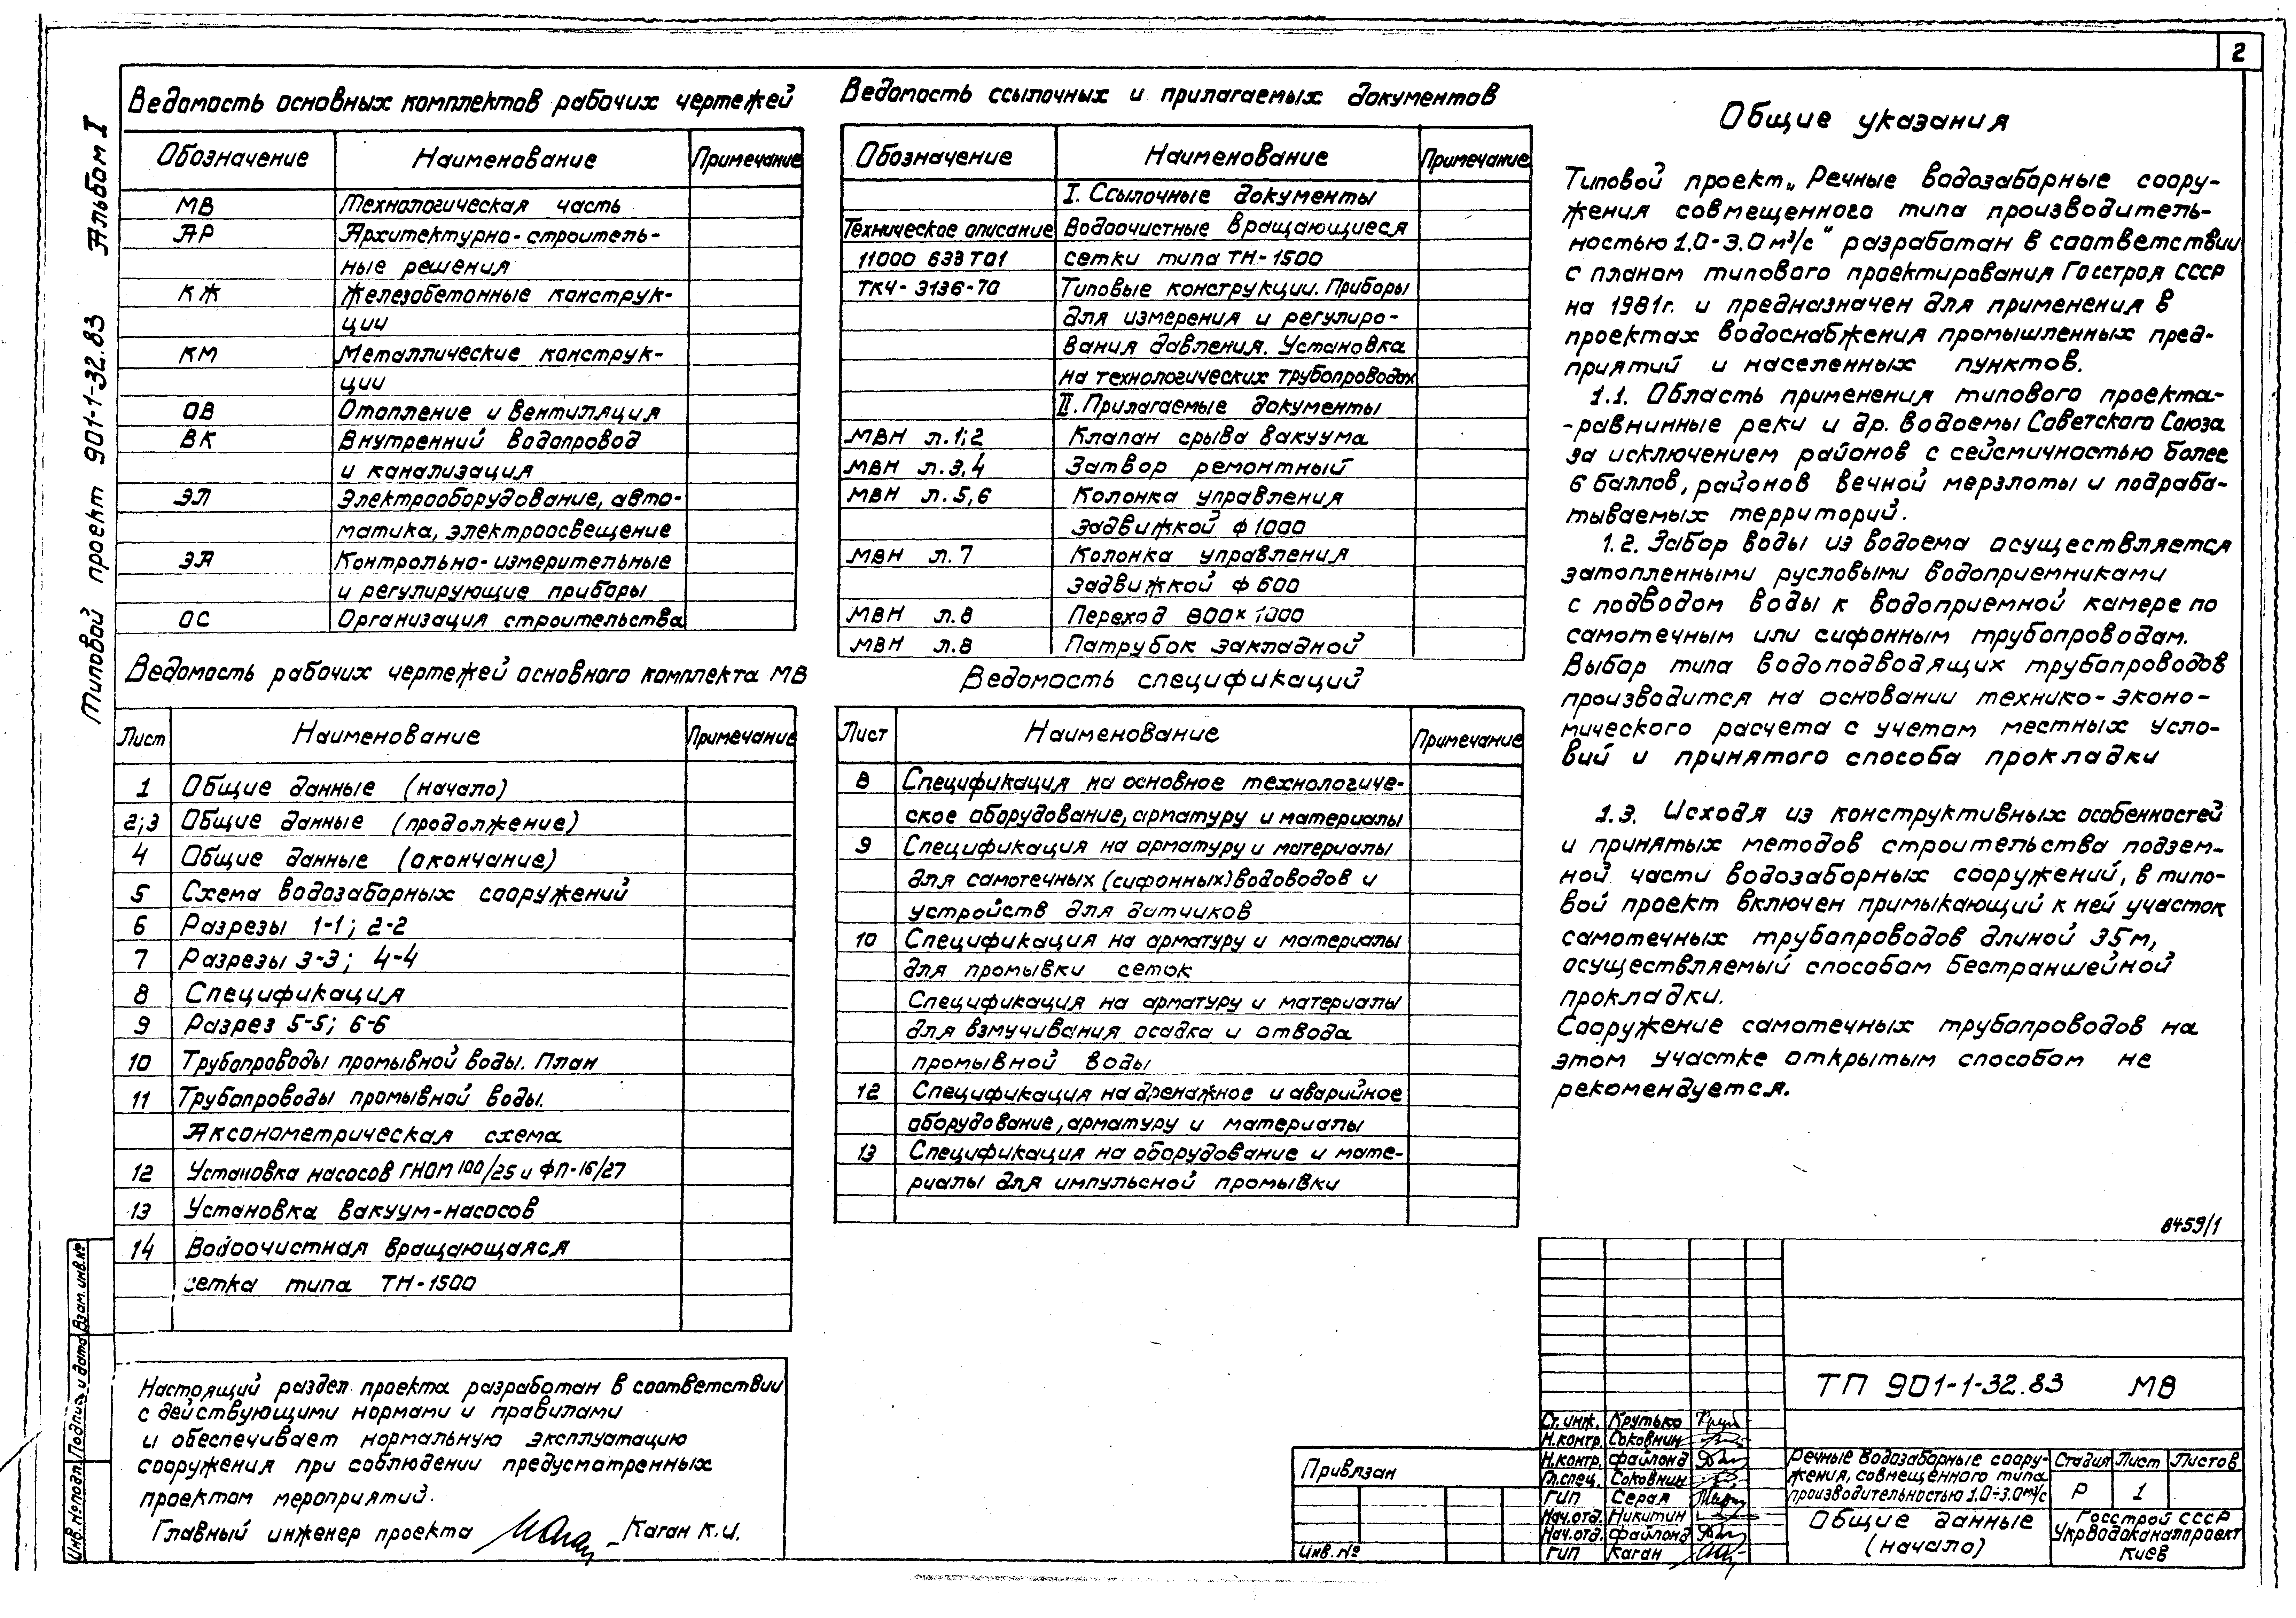 2
Альбом I
Типовой проект 901-1-32.83
Ведомость основных комплектов рабочих чертежей
Обозначение Наименование Примечание
МВ Технологическая часть
АР Архитектурно-строитель-
ные решения
КЖ Железобетонные конструк-
ции
КМ Металлические конструк-
ции
ОВ Отопление и вентиляция
ВК Внутренний водопровод
и канализация
ЭЛ Электрооборудование, авто-
матика, электроосвещение
ЭА Контрольно-измерительные
и регулирующие приборы
ОС Организация строительства
Ведомость рабочих чертежей основного комплекта МВ
Лист Наименование Примечание
1 Общие данные (начало)
2;3 Общие данные (продолжение)
4 Общие данные (окончание)
5 Схема водозаборных сооружений
6 Разрезы 1-1; 2-2
7 Разрезы 3-3; 4-4
8 Спецификация
9 Разрез 5-5; 6-6
10 Трубопроводы промывной воды. План
11 Трубопроводы промывной воды.
Аксонометрическая схема
12 Установка насосов ГНОМ 100/25 и ФП-16/27
13 Установка вакуум-насосов
14 Водоочистная вращающаяся
сетка типа ТН-1500
Настоящий раздел проекта разработан в соответствии
с действующими нормами и правилами
и обеспечивает нормальную эксплуатацию
сооружения при соблюдении предусмотренных
проектом мероприятий.
Главный инженер проекта Каган К.И.
Ведомость ссылочных и прилагаемых документов
Обозначение Наименование Примечание
I. Ссылочные документы
Техническое описание Водоочистные вращающиеся
11000 633 ТО1 сетки типа ТН-1500
ТК4-3136-70 Типовые конструкции. Приборы
для измерения и регулиро-
вания давления. Установка
на технологических трубопроводах
II. Прилагаемые документы
МВН л.1;2 Клапан срыва вакуума
МВН л.3,4 Затвор ремонтный
МВН л.5,6 Колонка управления
задвижкой ф 1000
МВН л.7 Колонка управления
задвижкой ф 600
МВН л.8 Переход 800×1000
МВН л.8 Патрубок закладной
Ведомость спецификаций
Лист Наименование Примечание
8 Спецификация на основное технологиче-
ское оборудование, арматуру и материалы
9 Спецификация на арматуру и материалы
для самотечных (сифонных) водоводов и
устройств для датчиков
10 Спецификация на арматуру и материалы
для промывки сеток
Спецификация на арматуру и материалы
для взмучивания осадка и отвода
промывной воды
12 Спецификация на дренажное и аварийное
оборудование, арматуру и материалы
13 Спецификация на оборудование и мате-
риалы для импульсной промывки
Общие указания
Типовой проект „Речные водозаборные соору-
жения совмещенного типа производитель-
ностью 1.0-3.0 м³/с“ разработан в соответствии
с планом типового проектирования Госстроя СССР
на 1981г. и предназначен для применения в
проектах водоснабжения промышленных пред-
приятий и населенных пунктов.
1.1. Область применения типового проекта-
-равнинные реки и др. водоемы Советского Союза
за исключением районов с сейсмичностью более
6 баллов, районов вечной мерзлоты и подраба-
тываемых территорий.
1.2. Забор воды из водоема осуществляется
затопленными русловыми водоприемниками
с подводом воды к водоприемной камере по
самотечным или сифонным трубопроводам.
Выбор типа водоподводящих трубопроводов
производится на основании технико-эконо-
мического расчета с учетом местных усло-
вий и принятого способа прокладки
1.3. Исходя из конструктивных особенностей
и принятых методов строительства подзем-
ной части водозаборных сооружений, в типо-
вой проект включен примыкающий к ней участок
самотечных трубопроводов длиной 35м,
осуществляемый способом бестраншейной
прокладки.
Сооружение самотечных трубопроводов на
этом участке открытым способом не
рекомендуется.
8459/1
ТП 901-1-32.83 МВ
Ст. инж. Крутько
Н.контр. Соковнин
Н.контр. Файлонд
Гл.спец. Соковнин
ГИП Серая
Нач.отд. Никитин
Нач.отд. Файлонд
ГИП Каган
Речные водозаборные соору-
жения, совмещенного типа
производительностью 1.0÷3.0м³/с
Стадия Лист Листов
Р 1
Общие данные
(начало)
Госстрой СССР
Укрводоканалпроект
Киев
Привязан
Инв. №
Инв. № подл. Подпись и дата Взам. инв. №